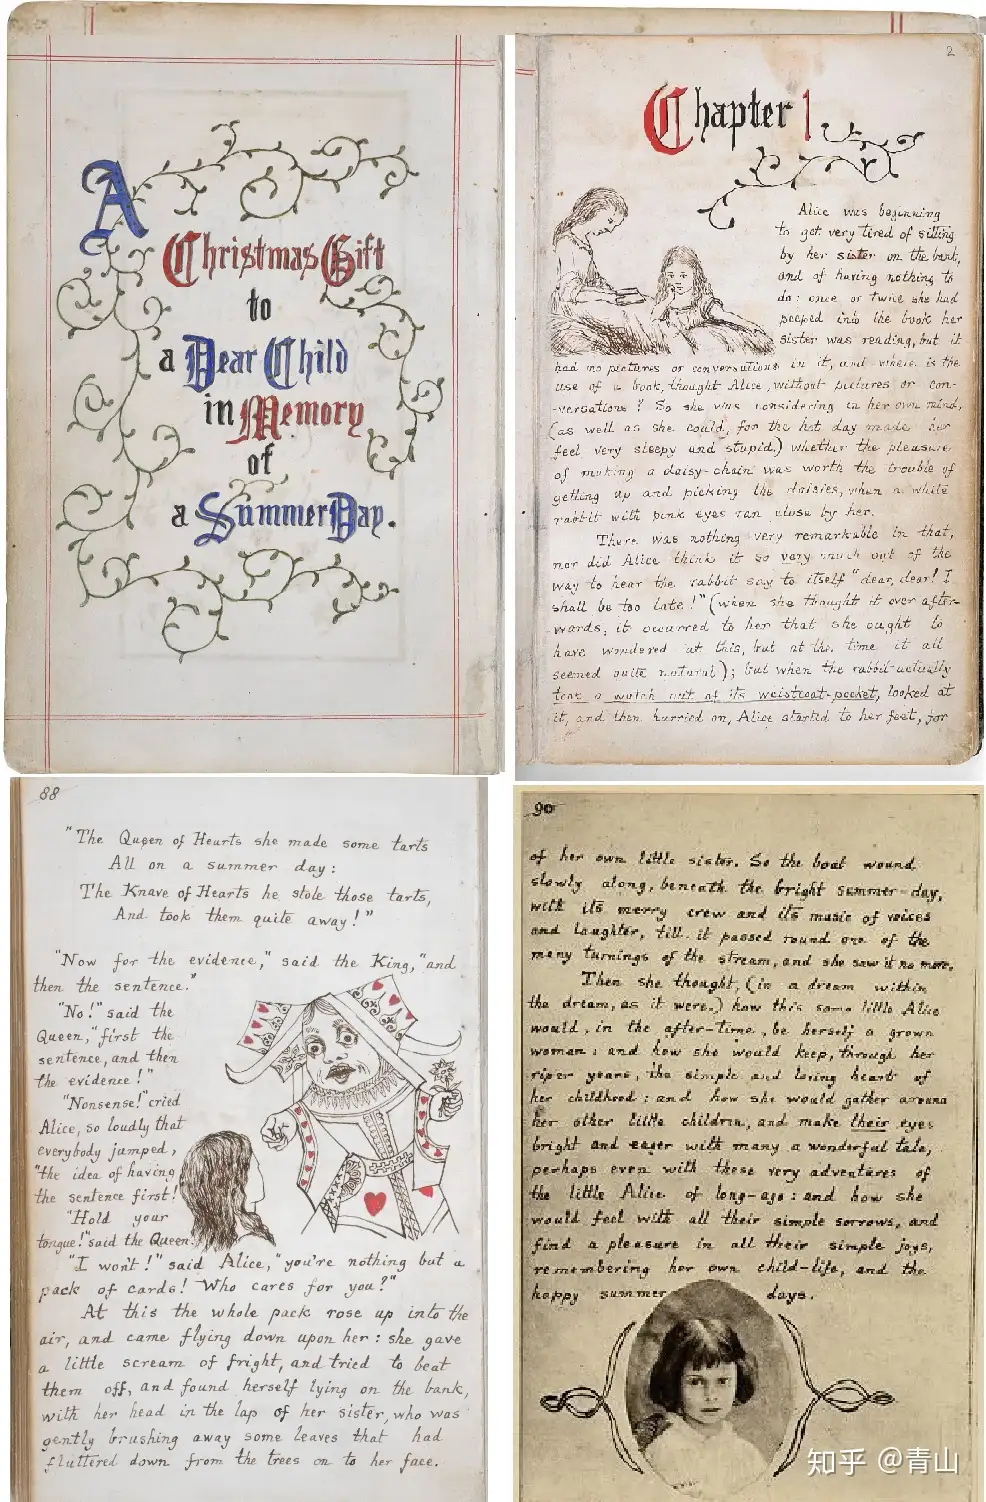 A
Christmas Gift
to
a Dear Child
in Memory
of
a Summer Day.
2
Chapter 1
Alice was beginning
to get very tired of sitting
by her sister on the bank,
and of having nothing to
do: once or twice she had
peeped into the book her
sister was reading, but it
had no pictures or conversations in it, and where is the
use of a book, thought Alice, without pictures or con-
-versations? So she was considering in her own mind,
(as well as she could, for the hot day made her
feel very sleepy and stupid,) whether the pleasure
of making a daisy-chain was worth the trouble of
getting up and picking the daisies, when a white
rabbit with pink eyes ran close by her.
There was nothing very remarkable in that,
nor did Alice think it so very much out of the
way to hear the rabbit say to itself "dear, dear! I
shall be too late!" (when she thought it over after-
-wards, it occurred to her that she ought to
have wondered at this, but at the time it all
seemed quite natural); but when the rabbit actually
took a watch out of its waistcoat-pocket, looked at
it, and then hurried on, Alice started to her feet, for
88
"The Queen of Hearts she made some tarts
All on a summer day:
The Knave of Hearts he stole those tarts,
And took them quite away!"
"Now for the evidence," said the King, "and
then the sentence."
"No!" said the
Queen, "first the
sentence, and then
the evidence!"
"Nonsense!" cried
Alice, so loudly that
everybody jumped,
"the idea of having
the sentence first!
"Hold your
tongue!" said the Queen.
"I won't!" said Alice, "you're nothing but a
pack of cards! Who cares for you?"
At this the whole pack rose up into the
air, and came flying down upon her: she gave
a little scream of fright, and tried to beat
them off, and found herself lying on the bank,
with her head in the lap of her sister, who was
gently brushing away some leaves that had
fluttered down from the trees on to her face.
90
of her own little sister. So the boat wound
slowly along, beneath the bright summer-day,
with its merry crew and its music of voices
and laughter, till it passed round one of the
many turnings of the stream, and she saw it no more.
Then she thought, (in a dream within
the dream, as it were,) how this same little Alice
would, in the after-time, be herself a grown
woman: and how she would keep, through her
riper years, the simple and loving heart of
her childhood: and how she would gather around
her other little children, and make their eyes
bright and eager with many a wonderful tale,
perhaps even with these very adventures of
the little Alice of long-ago: and how she
would feel with all their simple sorrows, and
find a pleasure in all their simple joys,
remembering her own child-life, and the
happy summer days.
知乎 @青山